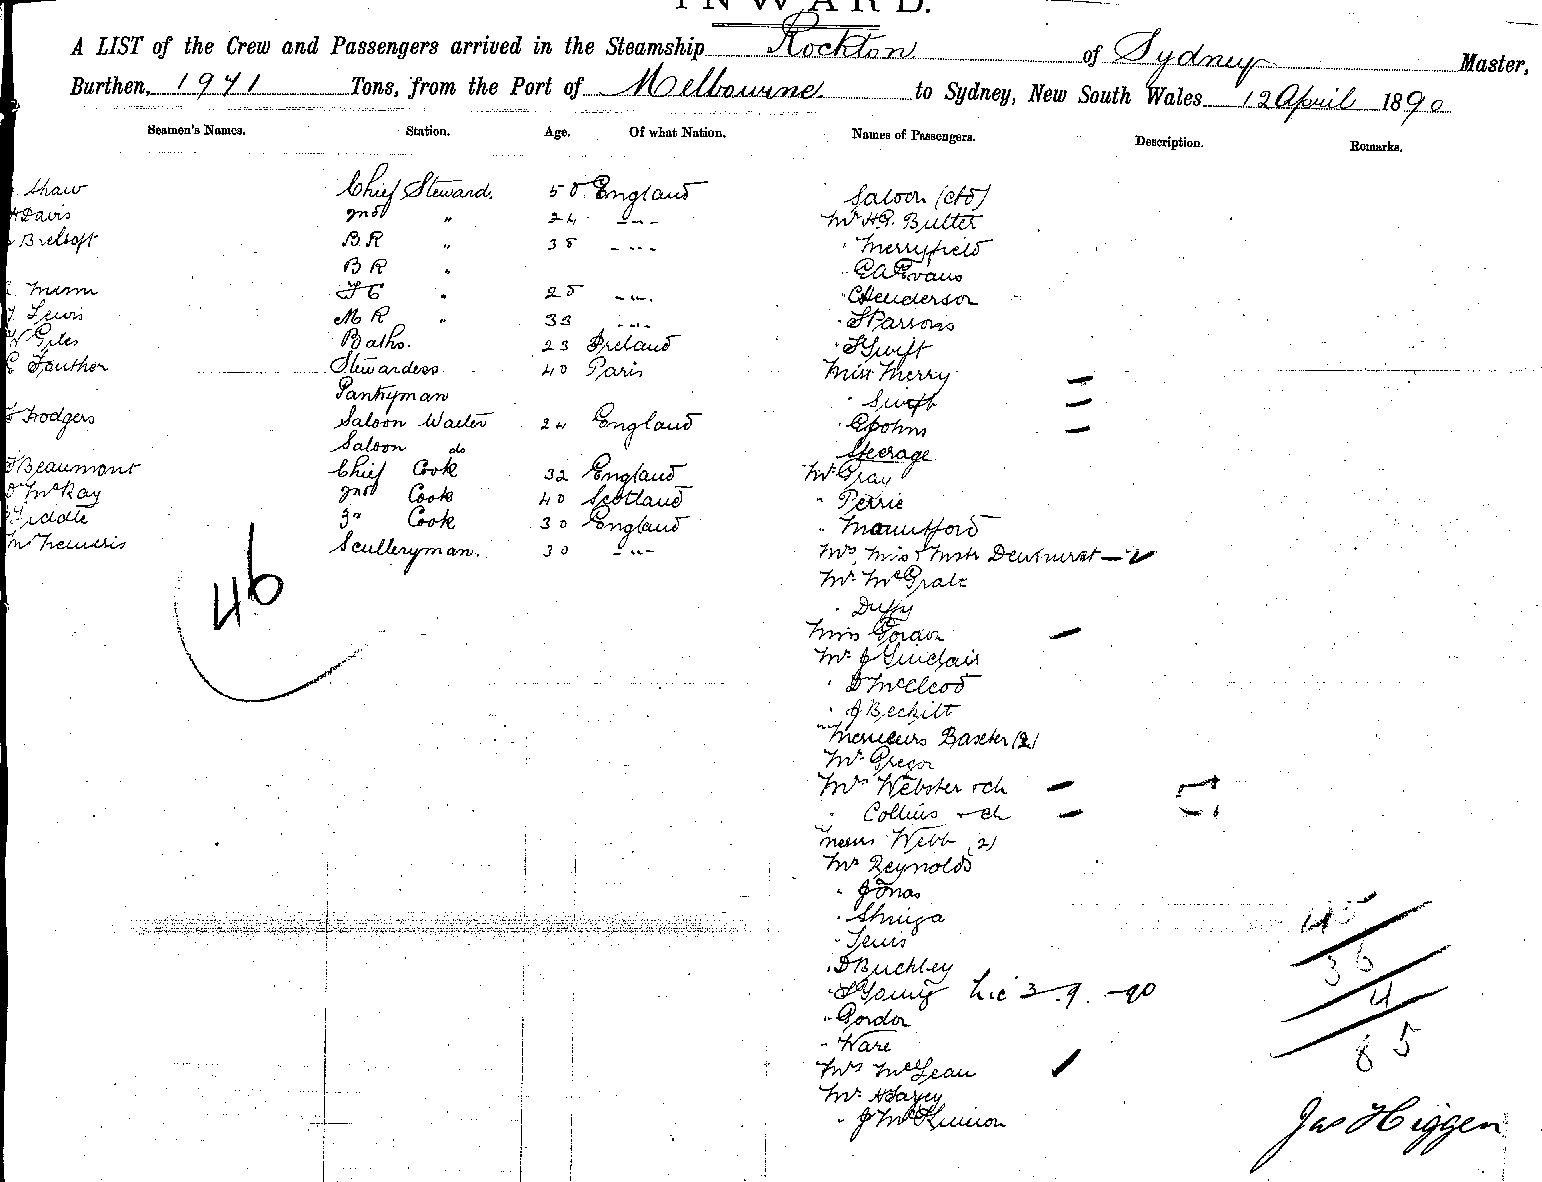 INWARD.
A LIST of the Crew and Passengers arrived in the Steamship Rockton of Sydney Master,
Burthen, 1971 Tons, from the Port of Melbourne to Sydney, New South Wales 12 April 1890
Seamen's Names. Station. Age. Of what Nation. Names of Passengers. Description. Remarks.
Shaw Chief Steward. 50 England
Davis 2nd " 24 -"-
B R " 38 -"-
B R "
" 25 -"-
Lewis M R " 33 -"-
W Giles Baths. 23 Ireland
Fauther Stewardess 40 Paris
Pantryman
Hodgers Saloon Waiter 24 England
Saloon do
Beaumont Chief Cook 32 England
McKay 2nd Cook 40 Scotland
Liddle 3rd Cook 30 England
Sculleryman. 30 -"-
46
Saloon (ctd)
Mr H.G. Butler
" Merryfield
" E A Evans
" C Henderson
" S Parsons
" S Swift
Miss Merry
" Swift
" E Johns
Steerage
Mr Gray
" Perrie
" Mountford
Mrs, Miss & Mstr Dewhurst - 2
Mr McGrate
" Duffy
Miss Gordon
Mr J Sinclair
" D McCleod
" J Beckitt
Messieurs Baxter (2)
Mr Gregor
Mrs Webster + ch
" Collins + ch
Messrs Webb (2)
Mr Reynolds
" Jonas
" Shinga
" Lewis
" D Buckley
" S Young Lic 3-9-90
" Gordon
" Ware
Mrs McLean
Mr H Sazey
" J McKinnon
45
36
4
85
Jas Higgen